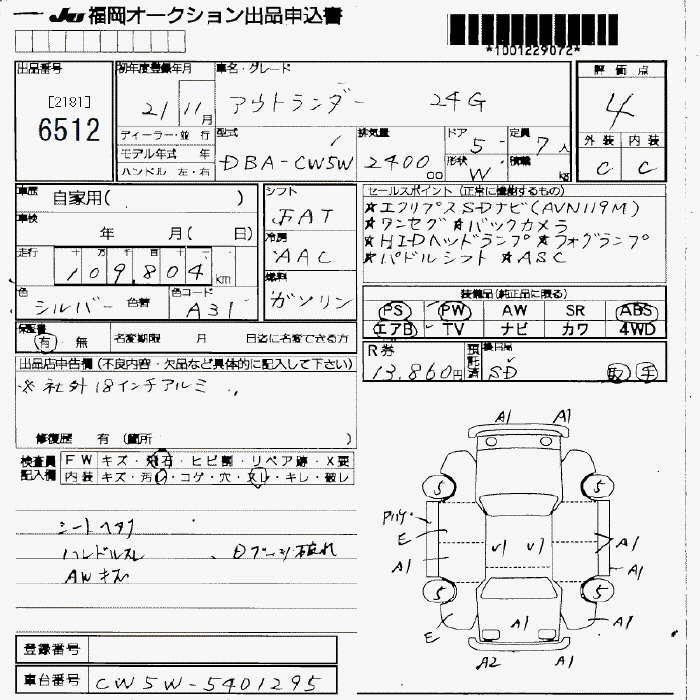 JU 福岡オークション出品申込書
*1001229072*
出品番号
[2181]
6512
初年度登録年月
21 11月
車名・グレード
アウトランダー 24G
評価点
4
外装 内装
C C
ディーラー・並行
モデル年式 年
ハンドル 左・右
型式
DBA-CW5W
排気量
2400 cc
ドア 5
形状 W
定員 7人
積載 kg
車歴 自家用( )
車検 年 月( 日)
走行 十 万 千 百 十 一
109,804 km
色 シルバー 色替
色コード A31
シフト
FAT
冷房
AAC
燃料
ガソリン
セールスポイント(正常に機能するもの)
★エクリプスSDナビ(AVN119M)
★ワンセグ★バックカメラ
★HIDヘッドランプ★フォグランプ
★パドルシフト★ASC
装備品(純正品に限る)
PS PW AW SR ABS
エアB TV ナビ カワ 4WD
保証書
有・無 名変期限 月 日迄に名変できる方
R券
13,860円
預託済
SD
取 手
出品店申告欄(不良内容・欠品など具体的に記入して下さい)
※社外18インチアルミ
修復歴 有(箇所 )
検査員記入欄
FW キズ・飛石・ヒビ割・リペア跡・X要
内装 キズ・汚れ・コゲ・穴・スレ・キレ・破レ
シートヘタリ
ハンドルスレ 、Dブーツ破れ
AWキズ
A1 A1
5 5
E
A1 V1 V1 A1
A1
5 5
E A1 A1
A2 A1
登録番号
車台番号 CW5W-5401295